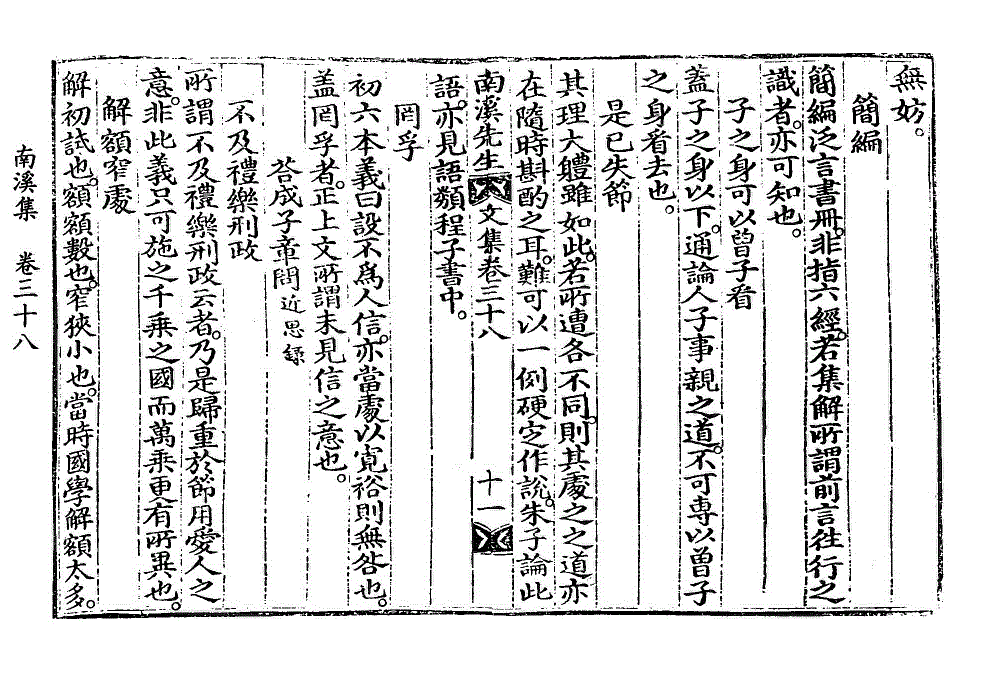 無妨。
簡編
簡編泛言書冊。非指六經。若集解所謂前言往行之
識者。亦可知也。
子之身可以曾子看
蓋子之身以下。通論人子事親之道。不可專以曾子
之身看去也。
是已失節
其理大軆雖如此。若所遭各不同。則其處之之道亦
在隨時斟酌之耳。難可以一例硬定作說。朱子論此
南溪先生文集卷三十八 十一
語。亦見語類程子書中。
罔孚
初六本義曰設不爲人信。亦當處以寬裕則無咎也。
盖罔孚者。正上文所謂未見信之意也。
答成子章問近思錄
不及禮樂刑政
所謂不及禮樂刑政云者。乃是歸重於節用愛人之
意。非此義只可施之千乘之國而萬乘更有所異也。
解額窄處
解初試也。額額數也。窄狹小也。當時國學解額太多。
南溪集 卷三十八